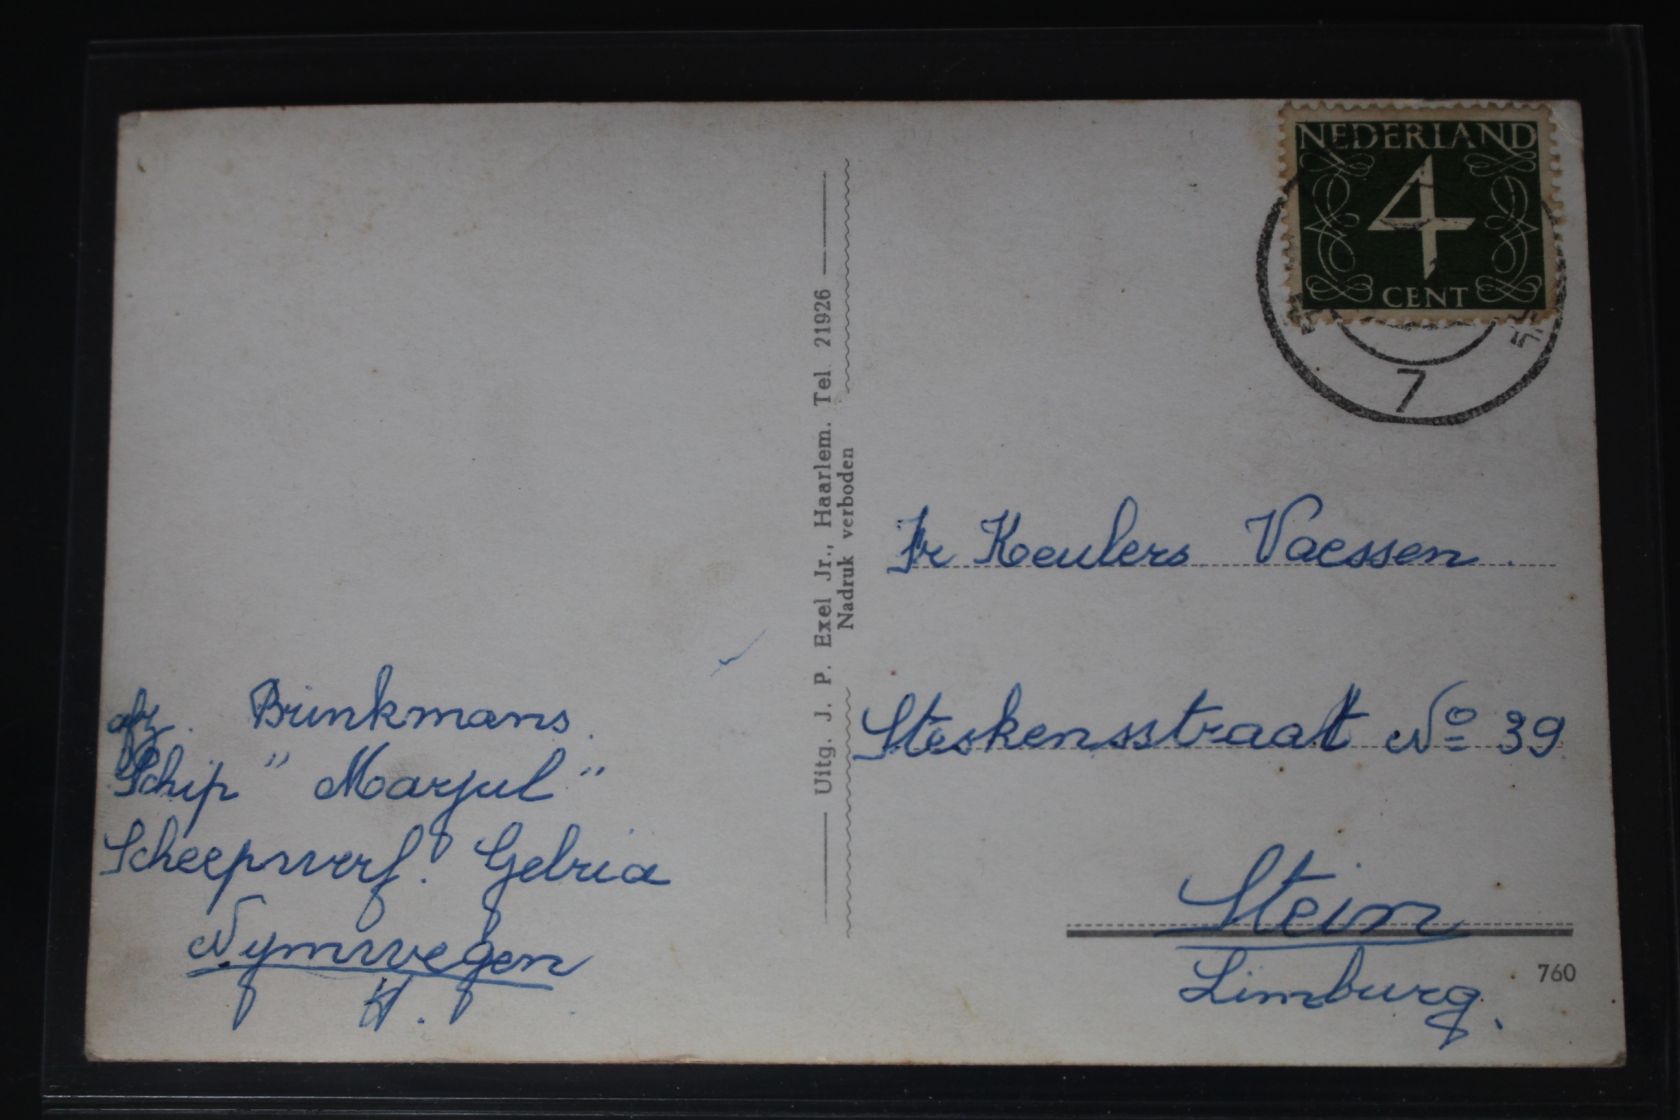 NEDERLAND
4
CENT
7
Uitg. J. P. Exel Jr., Haarlem. Tel. 21926
Nadruk verboden
Fr Keulers Vaessen.
Steskensstraat No 39
Stein
Limburg.
760
afz. Brinkmans.
Schip "Marjul"
Scheepswerf. Gelria
Nymwegen
H.